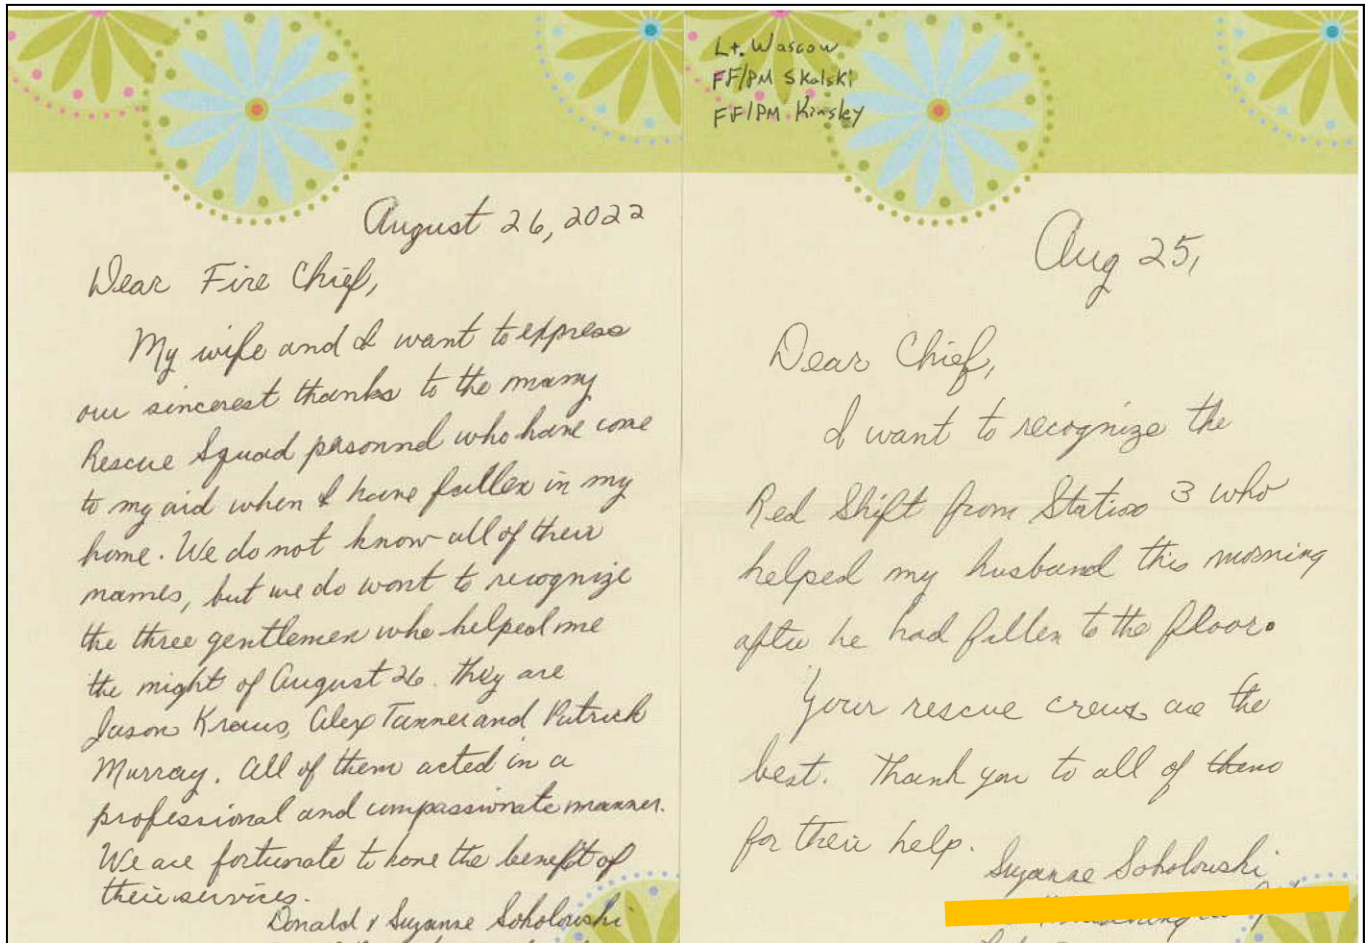 August 26, 2022
Dear Fire Chief,
My wife and I want to express
our sincerest thanks to the many
Rescue Squad personnel who have come
to my aid when I have fallen in my
home. We do not know all of their
names, but we do want to recognize
the three gentlemen who helped me
the night of August 26. They are
Jason Kraus, Alex Tanner and Patrick
Murray. All of them acted in a
professional and compassionate manner.
We are fortunate to have the benefit of
their services.
Donald & Suzanne Sokolowski
Lt. Wascow
FF/PM Skalski
FF/PM Kinsky
Aug 25,
Dear Chief,
I want to recognize the
Red Shift from Station 3 who
helped my husband this morning
after he had fallen to the floor.
Your rescue crews are the
best. Thank you to all of them
for their help.
Suzanne Sokolowski